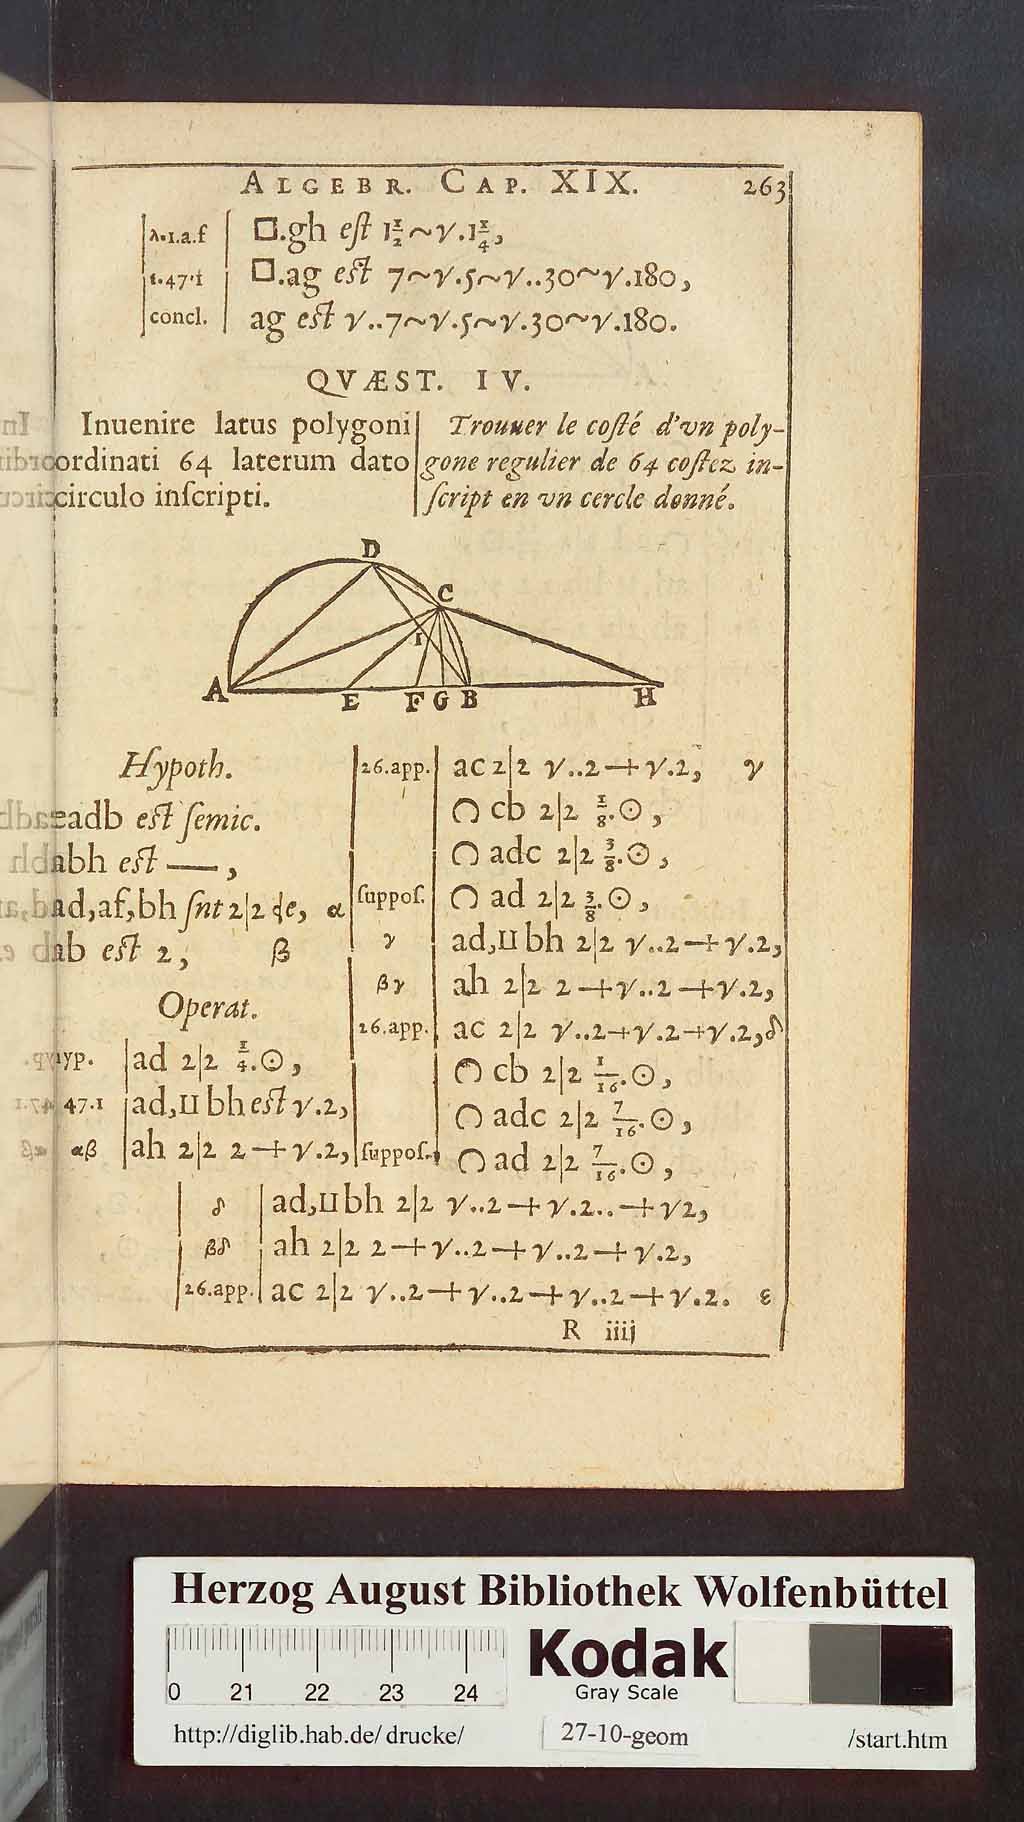 ALGEBR. CAP. XIX. 263
λ.1.a.f □.gh eſt 1½~√.1¼,
1.47.1 □.ag eſt 7~√.5~√..30~√.180,
concl. ag eſt √..7~√.5~√.30~√.180.
QVÆST. IV.
Inuenire latus polygoni
ordinati 64 laterum dato
circulo inſcripti.
Trouuer le coſté d'vn poly-
gone regulier de 64 coſtez in-
ſcript en vn cercle donné.
D
C
I
A E F G B H
Hypoth.
adb eſt ſemic.
abh eſt —,
ad,af,bh ſnt 2|2 de, α
ab eſt 2, β
Operat.
hyp. ad 2|2 ¼.☉,
47.1 ad,II bh eſt √.2,
αβ ah 2|2 2+√.2,
26.app. ac 2|2 √..2+√.2, γ
◠ cb 2|2 ⅛.☉,
◠ adc 2|2 ⅜.☉,
ſuppoſ. ◠ ad 2|2 ⅜.☉,
γ ad,II bh 2|2 √..2+√.2,
βγ ah 2|2 2+√..2+√.2,
26.app. ac 2|2 √..2+√.2+√.2,δ
◠ cb 2|2 1/16.☉,
◠ adc 2|2 7/16.☉,
ſuppoſ. ◠ ad 2|2 7/16.☉,
δ ad,II bh 2|2 √..2+√.2..+√2,
βδ ah 2|2 2+√..2+√..2+√.2,
26.app. ac 2|2 √..2+√..2+√..2+√.2. ε
R iiij
Herzog August Bibliothek Wolfenbüttel
0 21 22 23 24
Kodak
Gray Scale
http://diglib.hab.de/ drucke/ 27-10-geom /start.htm